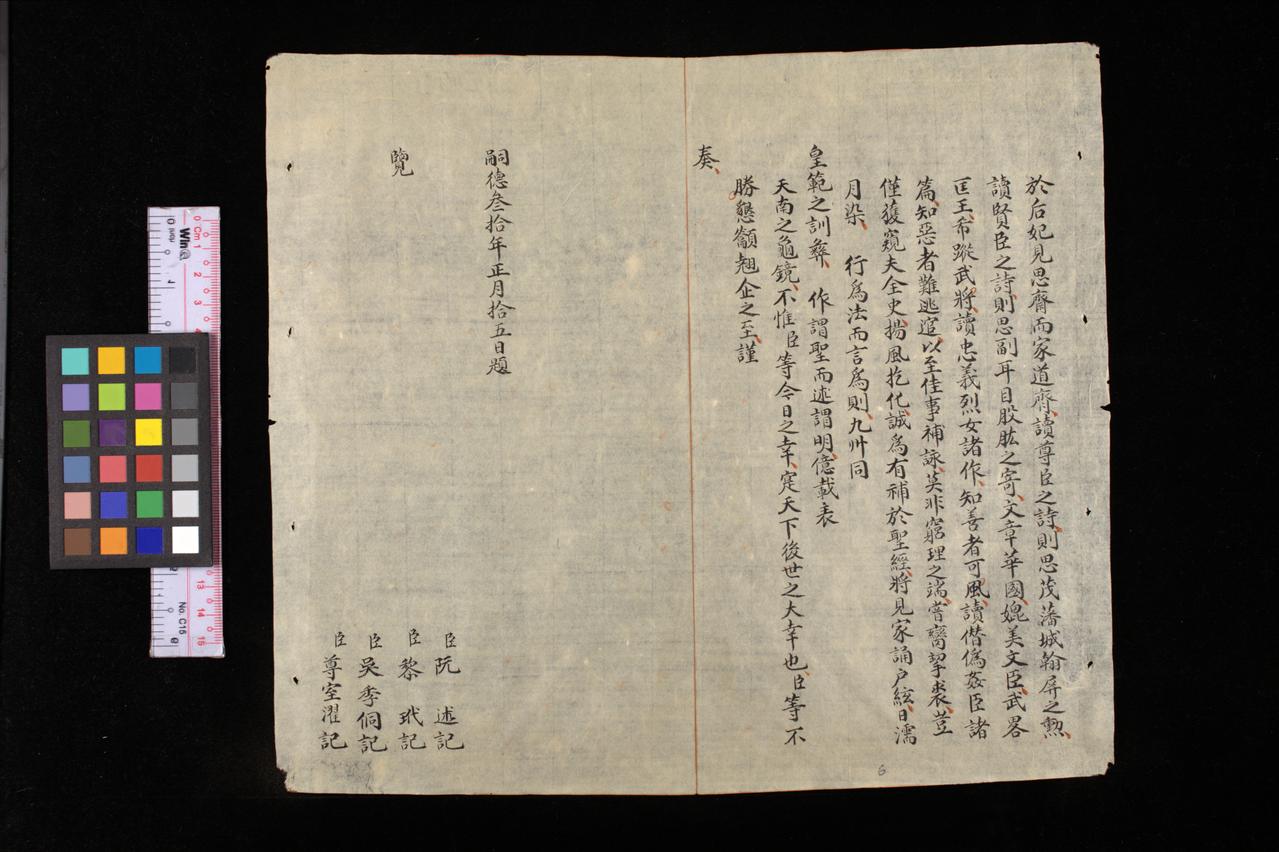 於后妃見思齊而家道齊讀尊臣之詩則思茂藩城翰屏之勲
讀賢臣之詩則思副耳目股肱之寄文章華國媲美文臣武畧
匡王希蹤武將讀忠義烈女諸作知善者可風讀僭偽姦臣諸
篇知惡者難逃逭以至佳事補詠莫非窮理之端嘗臠挈裘豈
僅獲窺夫全史揚風扢化誠爲有補於聖經將見家誦户絃日濡
月染 行爲法而言爲則九州同
皇範之訓彝 作謂聖而述謂明億載表
天南之龜鏡不惟臣等今日之幸寔天下後世之大幸也臣等不
勝懇籲翹企之至謹
奏
嗣德叁拾年正月拾五日題
覽
臣阮 述記
臣黎 玳記
臣吳季侗記
臣尊室濯記
6
0 cm 1 2 3
13 14 15
No. C15